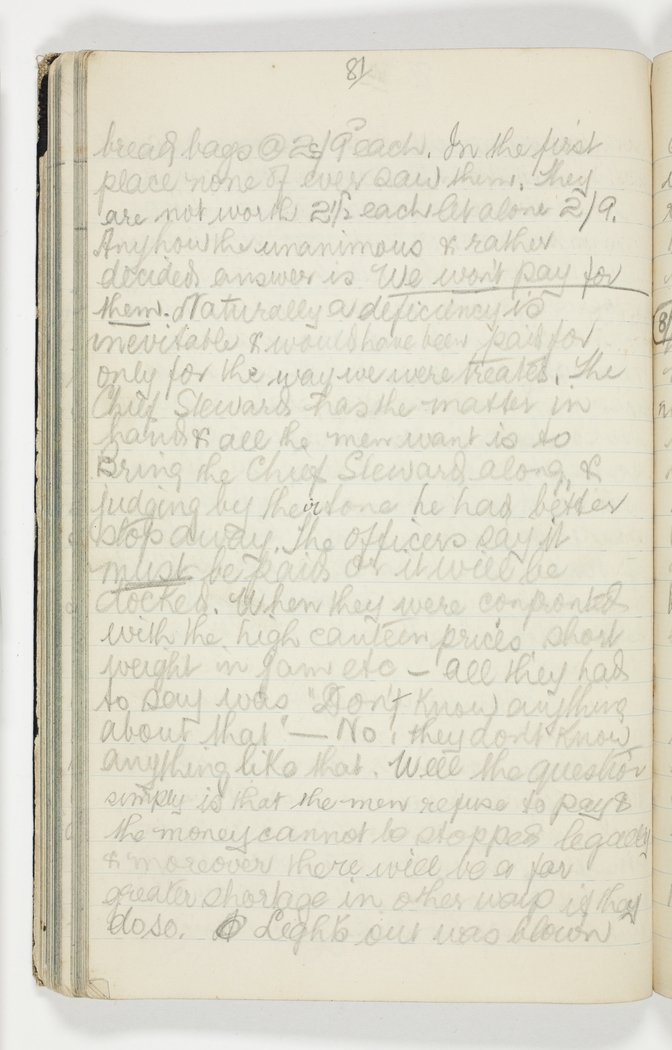 81
bread bags @ 2/9 each. In the first
place none of ever saw them. They
are not worth 2½ each let alone 2/9.
Anyhow the unanimous & rather
decided answer is We won't pay for
them. Naturally a deficiency is
inevitable & would have been paid for
only for the way we were treated. The
Chief Steward has the matter in
hand & all the men want is to
Bring the Chief Steward along, &
judging by their tone he had better
stop away. The officers say it
must be paid or it will be
docked. When they were confronted
with the high canteen prices short
weight in jam etc — all they had
to say was "Don't know anything
about that" — No! they don't know
anything like that. Well the question
simply is that the men refuse to pay &
the money cannot be stopped legally
& moreover there will be a far
greater shortage in other ways if they
do so. Lights out was blown